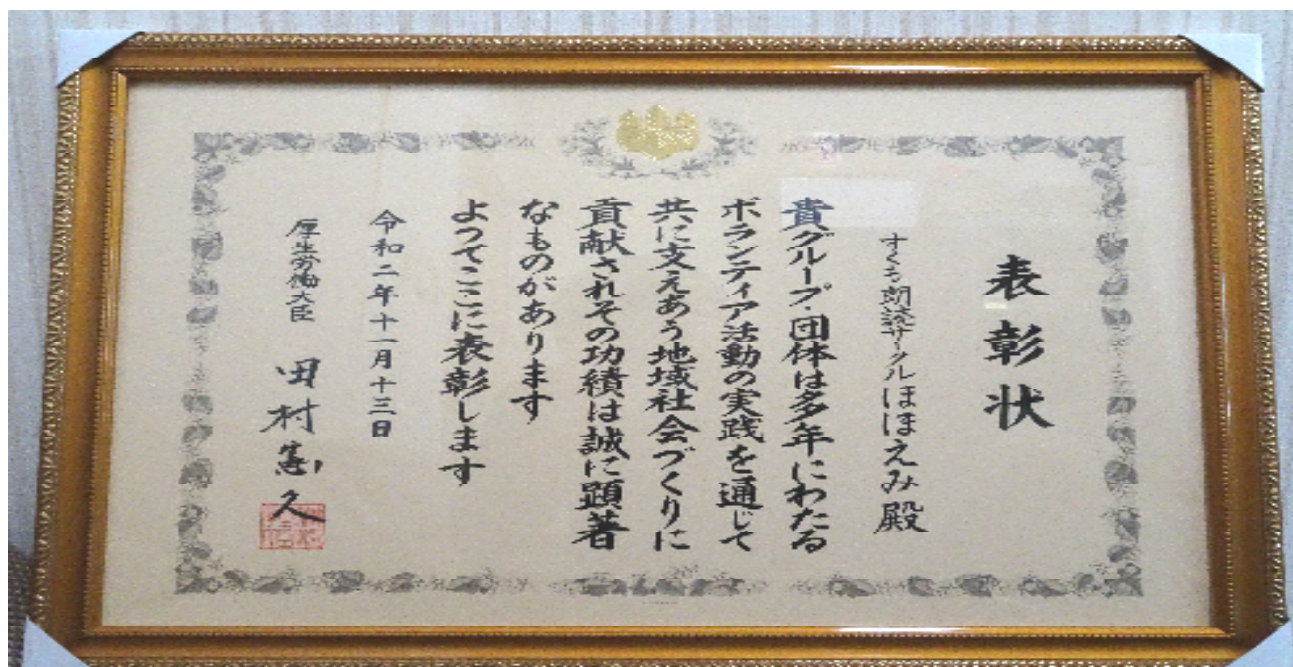 表彰状
すくも朗読サークルほほえみ殿
貴グループ・団体は多年にわたる
ボランティア活動の実践を通じて
共に支えあう地域社会づくりに
貢献されその功績は誠に顕著
なものがあります
よってここに表彰します
令和二年十一月十三日
厚生労働大臣 田村憲久